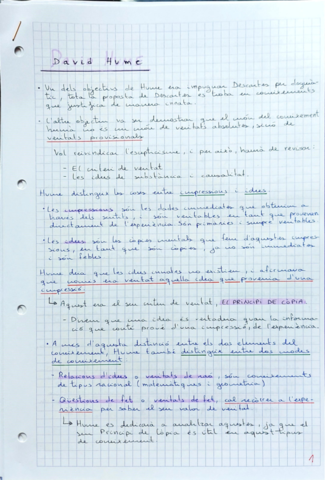 David Hume
• Un dels objectius de Hume era impugnar Descartes per dogmà-
tic, tota la proposta de Descartes es basa en coneixements
que justifica de manera innata.
• L'altre objectiu va ser demostrar que el món del coneixement
humà no és un món de veritats absolutes, sinó de
veritats provisionals
Vol reivindicar l'empirisme, i per això, haurà de revisar
- El criteri de veritat
- Les idees de substància i causalitat
Hume distingeix les idees entre impressions i idees
• Les impressions són les dades immediates que obtenim a
través dels sentits, i són veritables en tant que provenen
directament de l'experiència. Són primàries i sempre veritables
• Les idees són les còpies mentals que fem d'aquestes impres-
sions, en tant que són còpies, ja no són immediates
i són febles
Hume deia que les idees innates no existien i afirmava
que només era veritat aquella idea que provenia d'una
impressió.
↳ Aquest era el seu criteri de veritat, EL PRINCIPI DE CÒPIA.
- Direm que una idea és vertadera quan la informa-
ció que conté prové d'una impressió, de l'experiència.
• A més d'aquesta distinció entre els dos elements del
coneixement, Hume també distingeix entre dos modes
de coneixement
- Relacions d'idees o veritats de raó: són coneixements
de tipus racional (matemàtiques i geometria)
- Qüestions de fet o veritats de fet, cal recórrer a l'expe-
riència per saber el seu valor de veritat.
↳ Hume es dedicarà a analitzar aquestes, ja que el
seu Principi de Còpia és útil en aquest tipus
de coneixement
1